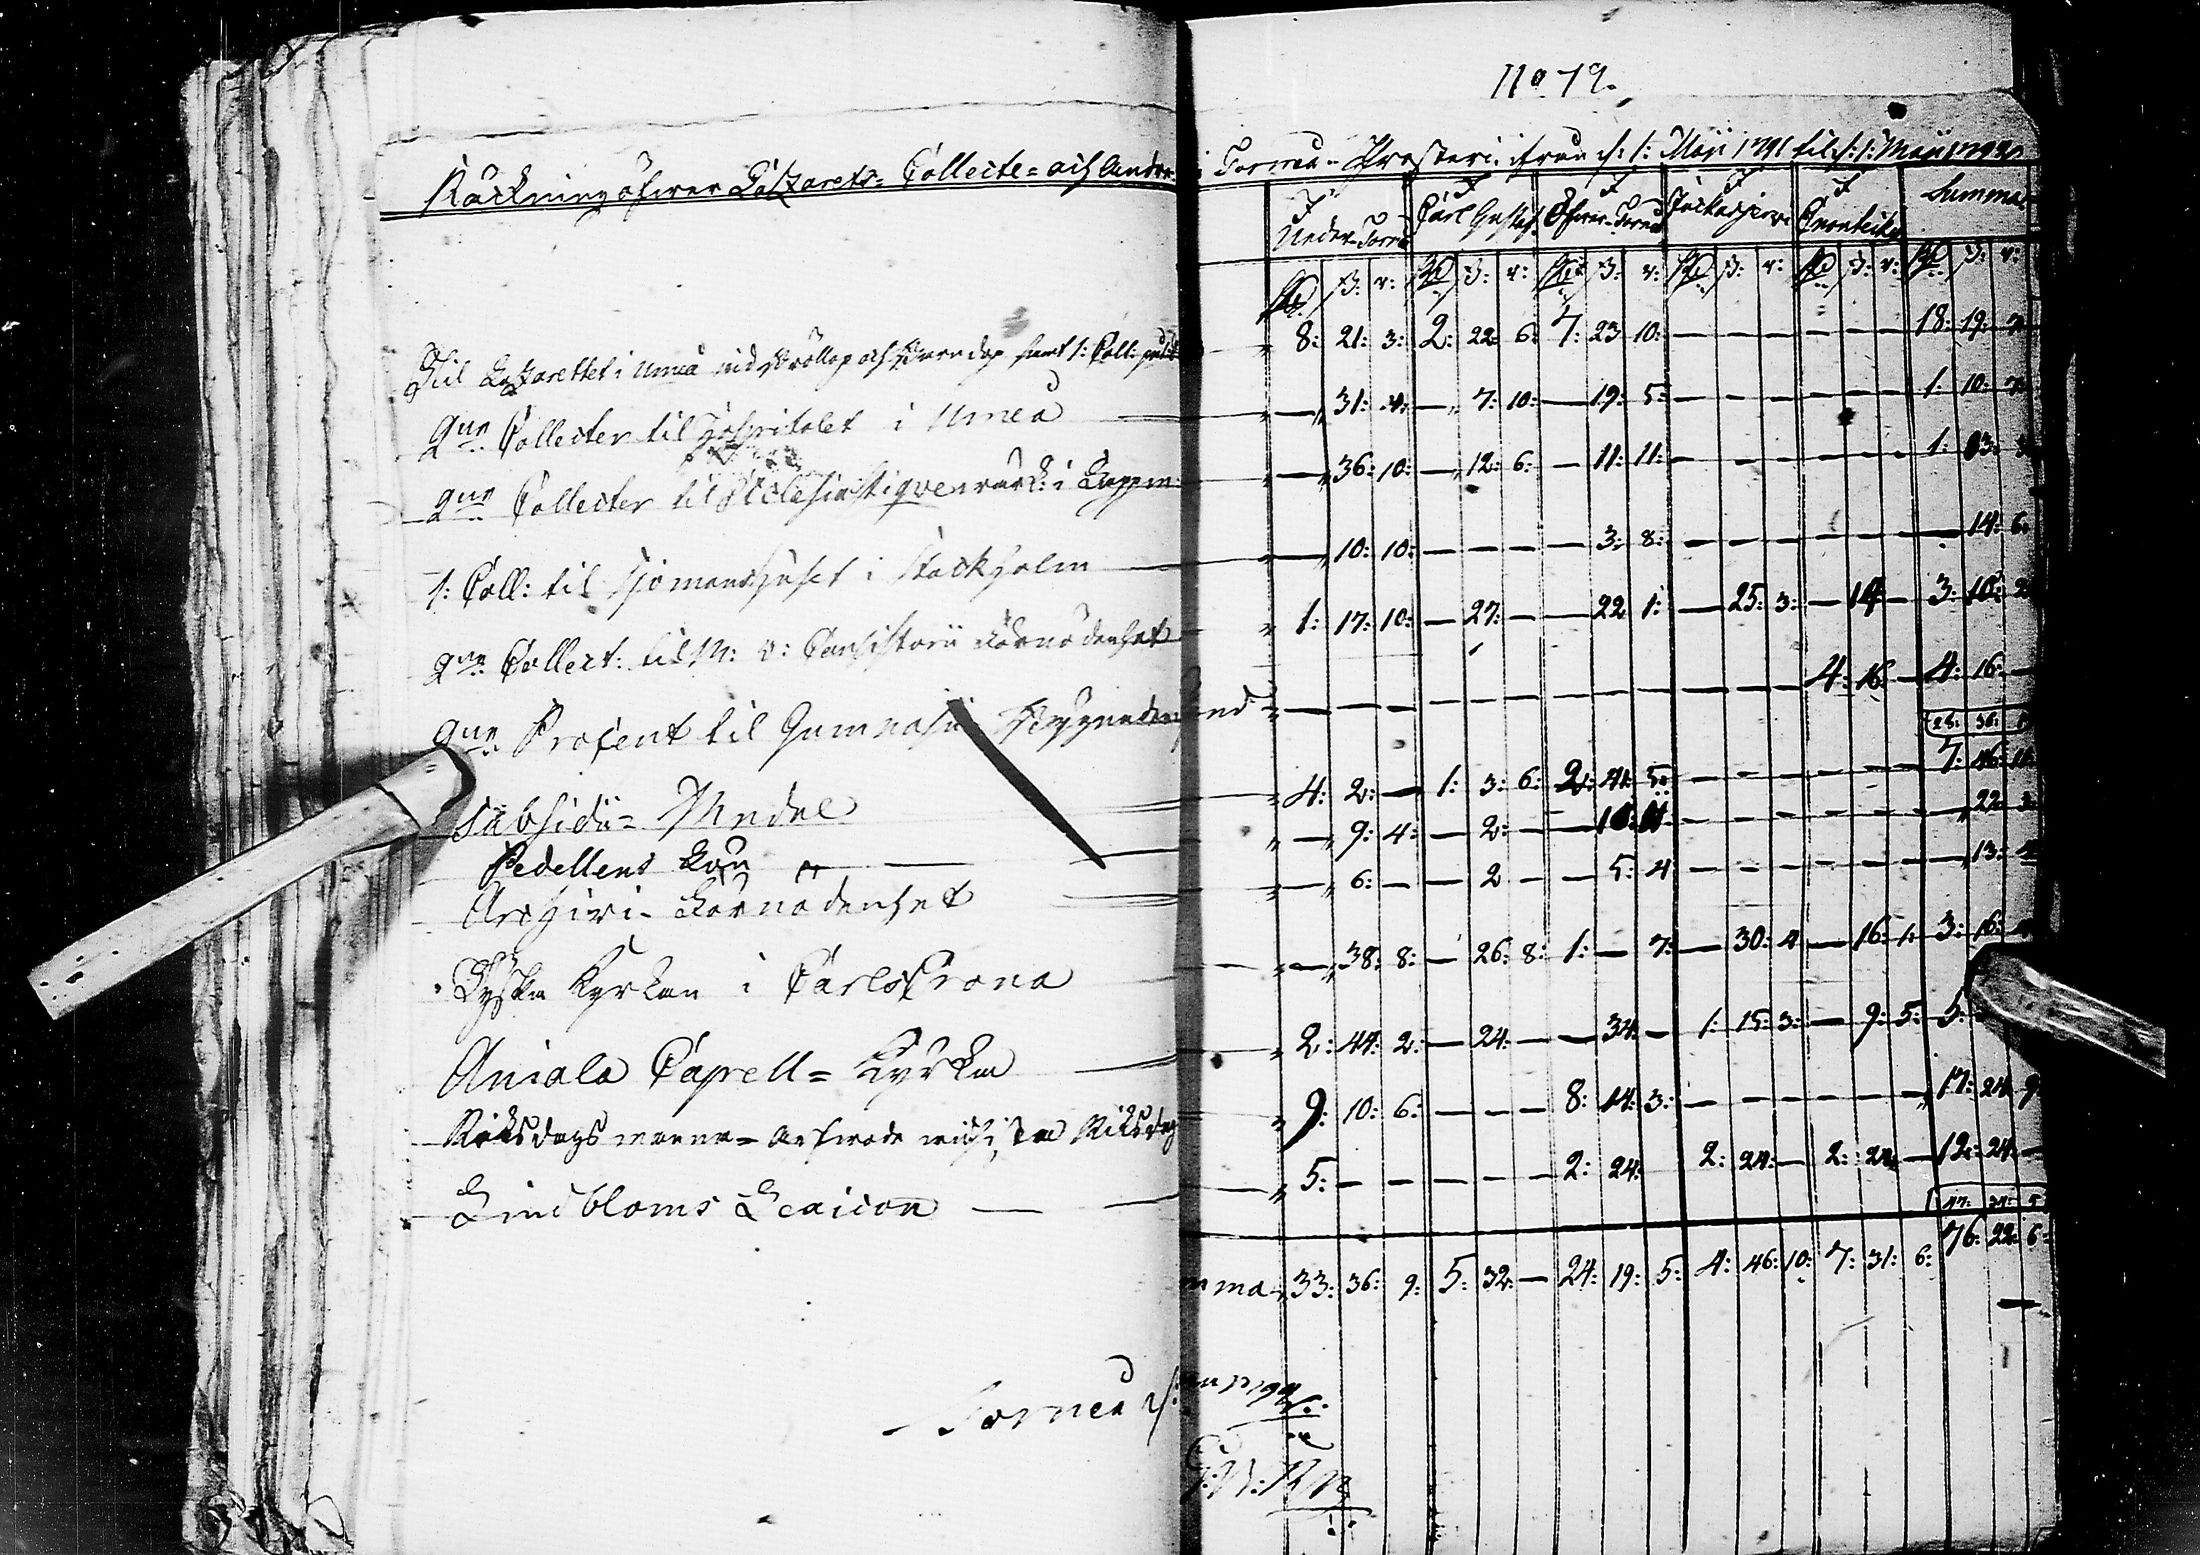 No 79.
Räckning öfwer Latzarets= Collecte= och andra i Torneå= Prosteri ifrån d: 1: Maji 1791 til d: 1: Maji 1792
I Neder-Torneå I Carl Gustaf I Öfwer-Torneå I Juckasjerwi I Enonteckis Summa
Rd ß: r: Rd ß: r: Rd ß: r: Rd ß: r: Rd ß: r: Rd ß: r:
Til Latzarettet i Umeå wid Bröllop och samt 1: Coll: 8: 21: 3: 2: 22: 6: 7: 23 10: — — — — — — 18: 19: 7
2ne Collecter til Hospitalet i Umeå — 31: 4: — 7: 10: — 19: 5: — — — — — — 1: 10: 7
2ne Collecter til Ecclesiastique wärk: i Lappm: — 36: 10: — 12: 6: — 11: 11: — — — — — — 1: 13: 3
1: Coll: til Sjömanshuset i Stockholm — 10: 10: — — — — 3: 8: — — — — — — — 14: 6:
2ne Collect: til M: V: Consistorii Körnödenhet 1: 17: 10: — 27: — — 22 1: — 25: 3: — 14 — 3: 10: 2
2ne Procent til Gymnasii Byggnad — — — — — — — — — — — — 4: 16: — 4: 16: —
Subsidii= Medel 4: 2: — 1: 3: 6: 2: 41: 5: — — — — — — 7: 46: 11
Pedellens Lön — 9: 4: — 2: — — 10: 11: — — — — — — — 22: 3:
Archivi- Körnödenhet — 6: — — 2 — — 5: 4 — — — — — — — 13: 4
Tyska Kyrkan i Carlscrona — 38: 8: — 26: 8: 1: — 7: — 30: 4 — 16: 1: 3: 16: 4
Aniala Capell= Kyrka 2: 44: 2: — 24: — — 34: — 1: 15: 3: — 9: 5: 5:
Riksdags manna= Arfwode wid sista Riksdag 9: 10: 6: — — — 8: 14: 3: — — — — — — 17: 24: 9
Lindbloms Lexicon — 5: — — — — — 2: 24: 2: 24: — 2: 24: — 12: 24: —
mma 33: 36: 9: 5: 32: — 24: 19: 5: 4: 46: 10: 7: 31: 6: 76: 22: 6:
Torneå d: